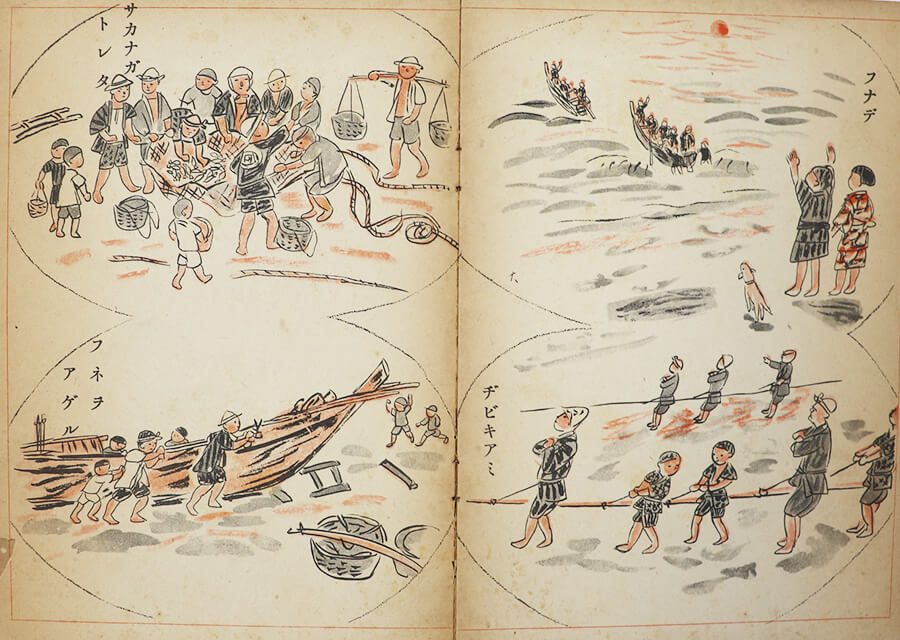 フナデ
ヂビキアミ
サカナガ
トレタ
フネヲ
アゲル